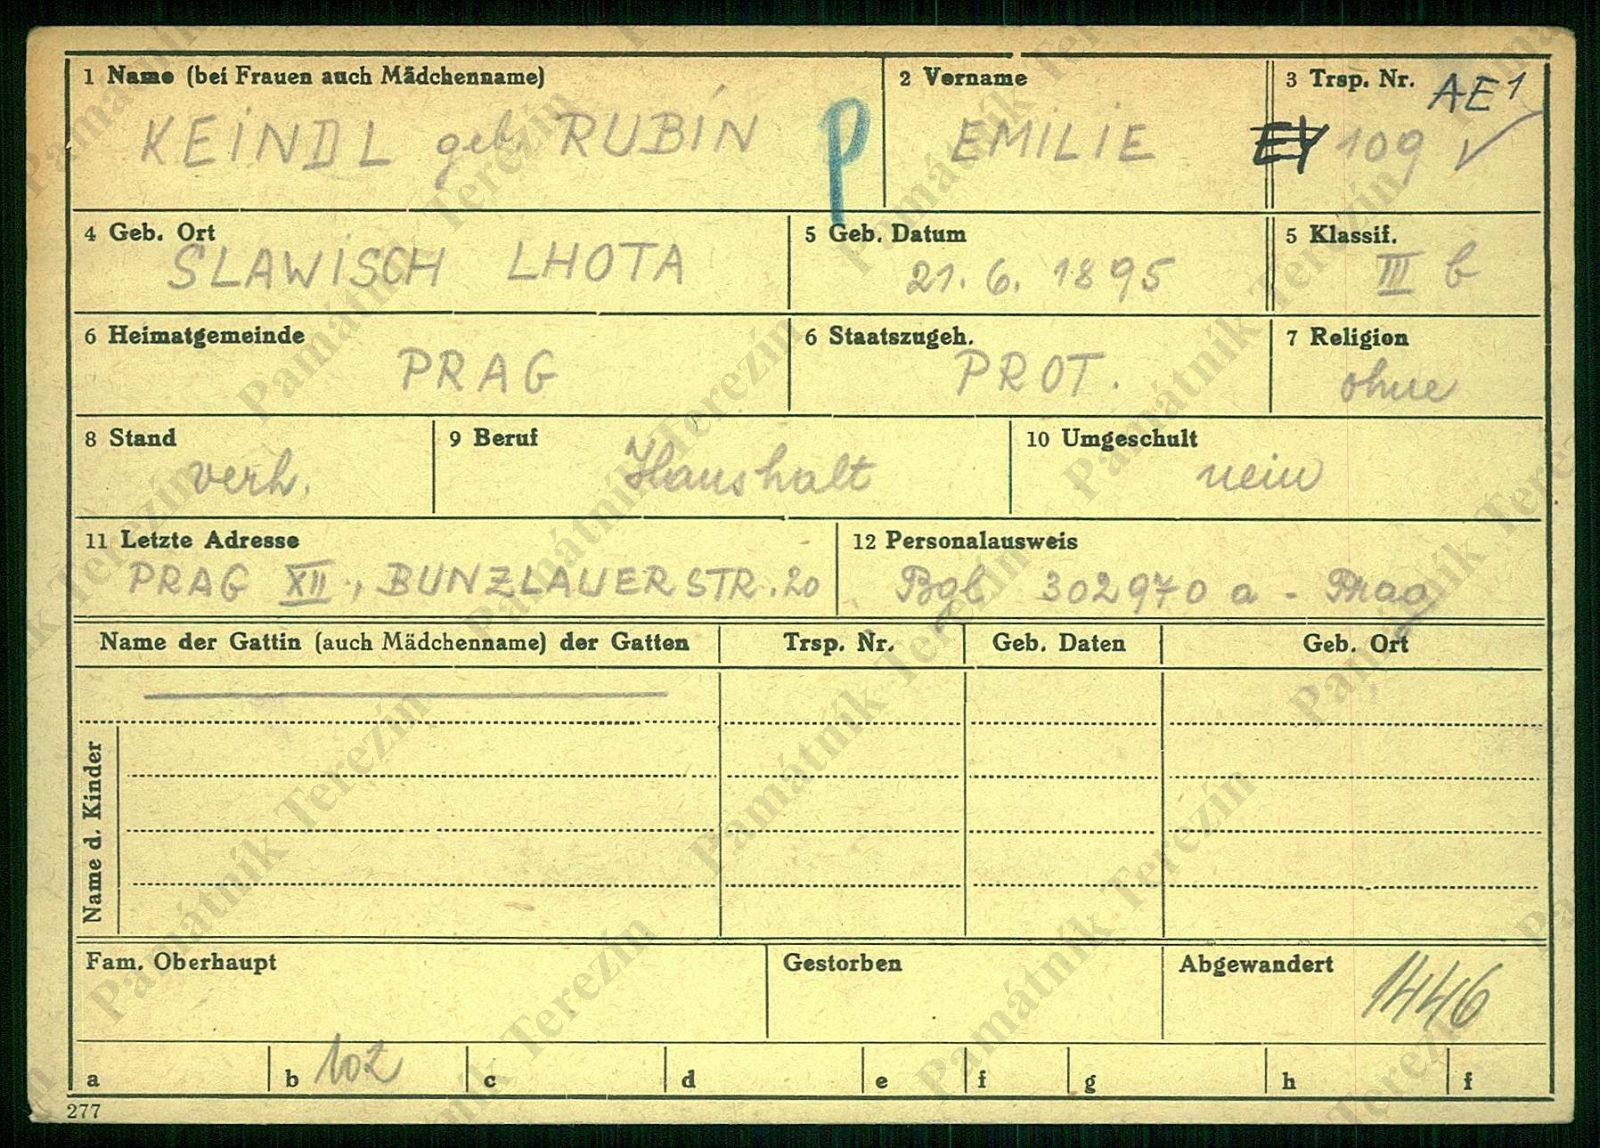 1 Name (bei Frauen auch Mädchenname)
KEINDL geb. RUBIN
P
2 Vorname
EMILIE
3 Trsp. Nr. AE1
EY 109
4 Geb. Ort
SLAWISCH LHOTA
5 Geb. Datum
21. 6. 1895
5 Klassif.
III b
6 Heimatgemeinde
PRAG
6 Staatszugeh.
PROT.
7 Religion
ohne
8 Stand
verh.
9 Beruf
Haushalt
10 Umgeschult
nein
11 Letzte Adresse
PRAG XII, BUNZLAUERSTR. 20
12 Personalausweis
Bgl 302970 a - Prag
Name der Gattin (auch Mädchenname) der Gatten
Trsp. Nr.
Geb. Daten
Geb. Ort
Name d. Kinder
Fam. Oberhaupt
Gestorben
Abgewandert
1446
a
b 102
c
d
e
f
g
h
f
277
Památník Terezín